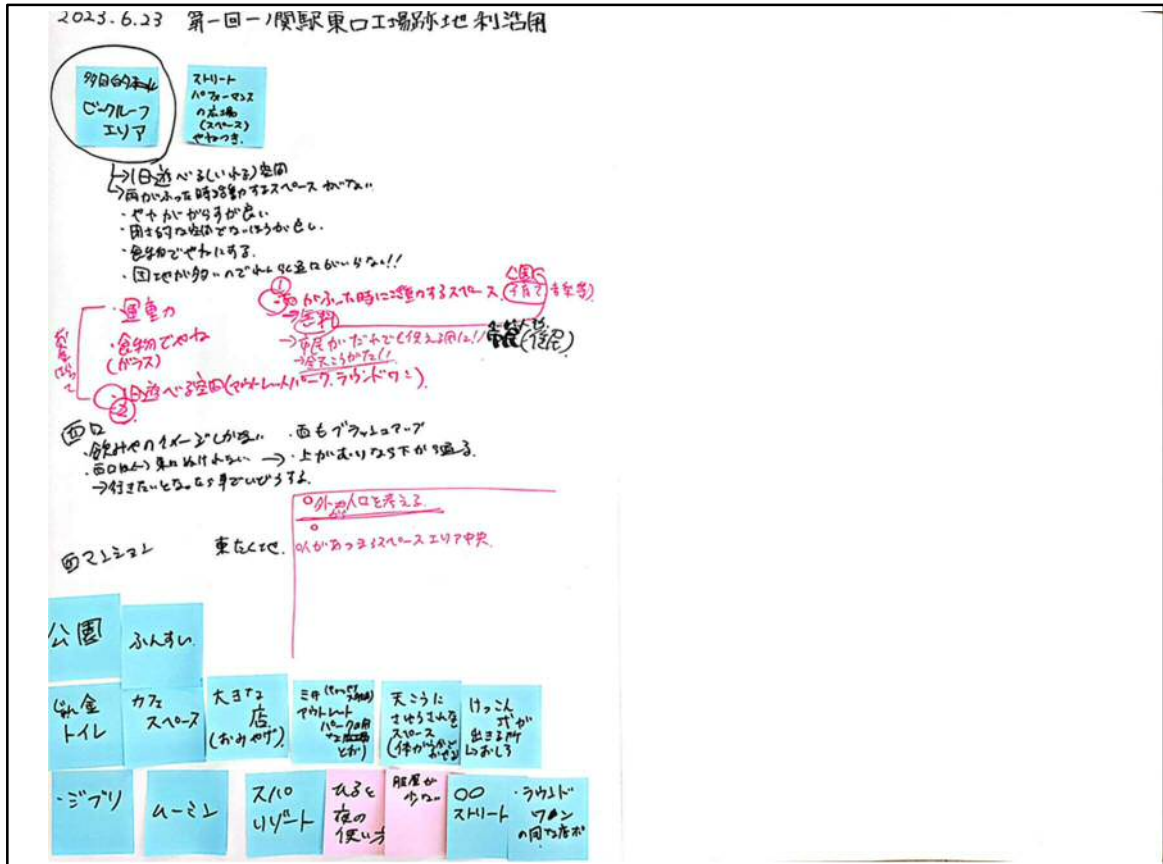 2023.6.23 第一回一ノ関駅東口工場跡地利活用
多目的ホール
ビックルーフ
エリア
ストリート
パフォーマンス
の広場
(スペース)
やねつき.
→1日遊べる(いれる)空間
→雨がふった時活動するスペースがない
・やねがガラスが良い
・閉さ的な空間でないほうが良い.
・団地が多いので
①
・雨がふった時に活動するスペース.
公園
子育て
→無料
→市民がだれでも使える
→全天こうがた!!
(住民)
・運動
(ガラス)
② ・1日遊べる空間(アウトレットパーク.ラウンドワン).
西口
・飲みやのイメージしかない
・西もブラッシュアップ
→・上がむりなら下から通る.
→行きたいとなったら車で
○外の人口を考える.
○
○人があつまるスペースエリア中央.
西マンション
東たくち.
公園
ふんすい.
トイレ
カフェ
スペース
大きな
店
(おみやげ)
アウトレット
パークの
とか)
天こうに
さゆうされない
スペース
けっこん
式が
出きる所
→おしろ
・ジブリ
ムーミン
スパ
リゾート
ひると
夜の
使い方
服屋が
少ない
○○
ストリート
・ラウンド
ワン
の同な店